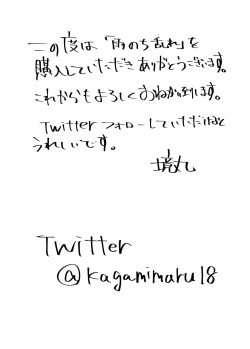 この度は「雨のち乱れ」を
購入していただきありがとうございます。
これからもよろしくおねがい致します。
Twitterフォローしていただけると
うれしいです。
丸
Twitter
@kagamimaru18